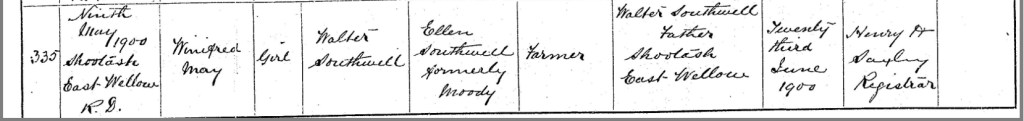 335
Ninth
May 1900
Shootash
East Wellow
R.D.
Winifred
May
Girl
Walter
Southwell
Ellen
Southwell
formerly
Moody
Farmer
Walter Southwell
Father
Shootash
East Wellow
Twenty
third
June
1900
Henry
Registrar